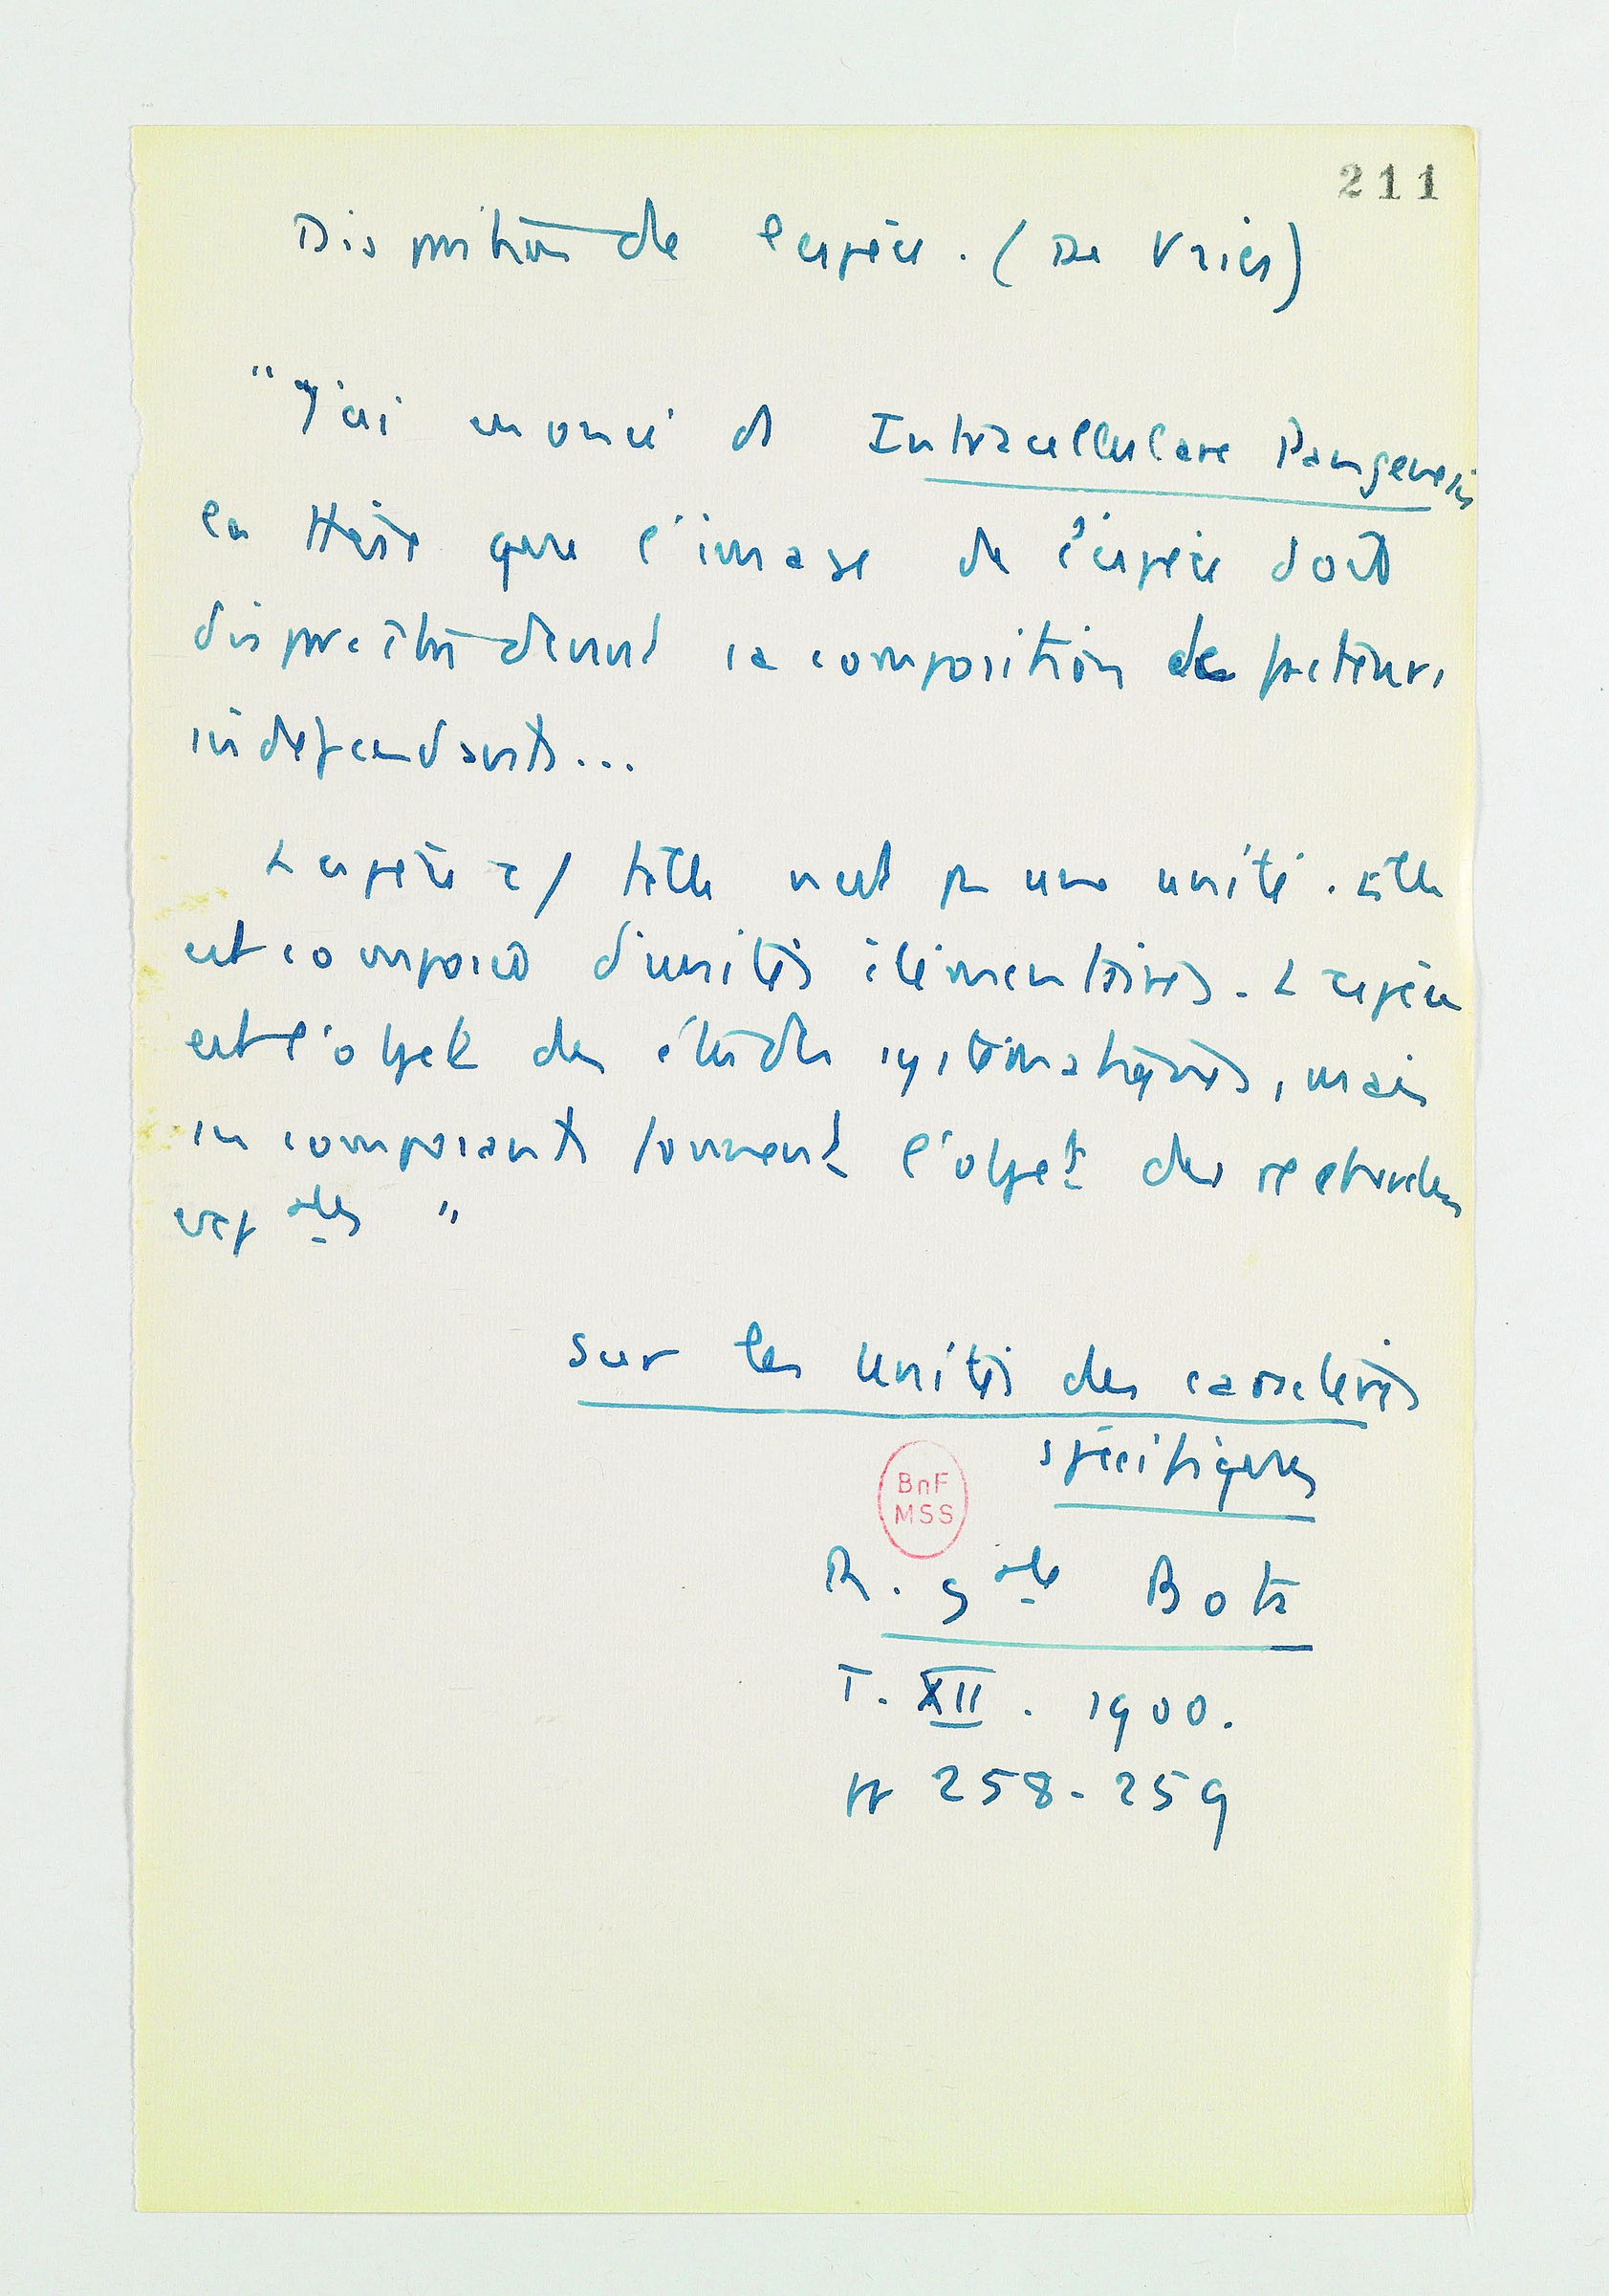 211
Disparition de l'espèce. (De Vries)
"J'ai énoncé ds Intracellulare Pangenesis
la thèse que l'image de l'espèce doit
disparaître devant sa composition de facteurs
indépendants...
L'espèce c/ telle n'est pas une unité. Elle
est composée d'unités élémentaires. L'espèce
est l'objet des études systématiques, mais
ses composants forment l'objet des recherches
expales "
Sur les unités des caractères
spécifiques
BnF
MSS
R. gale Bota
T. XII. 1900.
pp 258-259